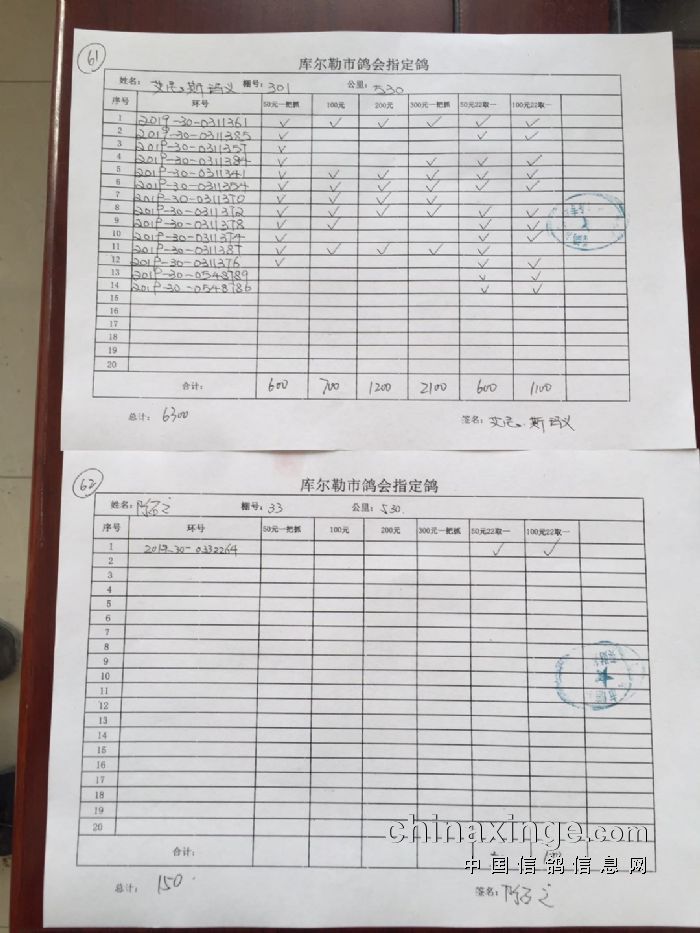 61
库尔勒市鸽会指定鸽
姓名: 艾尼·斯玛义 棚号: 301 公里: 530
序号 环号 50元一把抓 100元 200元 300元一把抓 50元22取一 100元22取一
1 2019-30-0311361 ✓ ✓ ✓ ✓ ✓ ✓
2 2019-30-0311385 ✓ ✓ ✓
3 2019-30-0311357 ✓
4 2019-30-0311384 ✓ ✓ ✓ ✓
5 2019-30-0311341 ✓ ✓ ✓ ✓ ✓ ✓
6 2019-30-0311354 ✓ ✓ ✓ ✓ ✓ ✓
7 2019-30-0311370 ✓ ✓ ✓ ✓
8 2019-30-0311372 ✓ ✓ ✓ ✓ ✓ ✓
9 2019-30-0311378 ✓ ✓ ✓ ✓
10 2019-30-0311374 ✓ ✓ ✓
11 2019-30-0311387 ✓ ✓ ✓ ✓ ✓
12 2019-30-0311376 ✓ ✓ ✓
13 2019-30-0548789 ✓ ✓
14 2019-30-0548786 ✓ ✓
15
16
17
18
19
20
合计: 600 700 1200 2100 600 1100
总计: 6300 签名: 艾尼·斯玛义
62
库尔勒市鸽会指定鸽
姓名: 棚号: 33 公里: 530
序号 环号 50元一把抓 100元 200元 300元一把抓 50元22取一 100元22取一
1 2017-30-0332264 ✓ ✓
2
3
4
5
6
7
8
9
10
11
12
13
14
15
16
17
18
19
20
合计:
总计: 150
签名:
chinaxinge.com
中国信鸽信息网